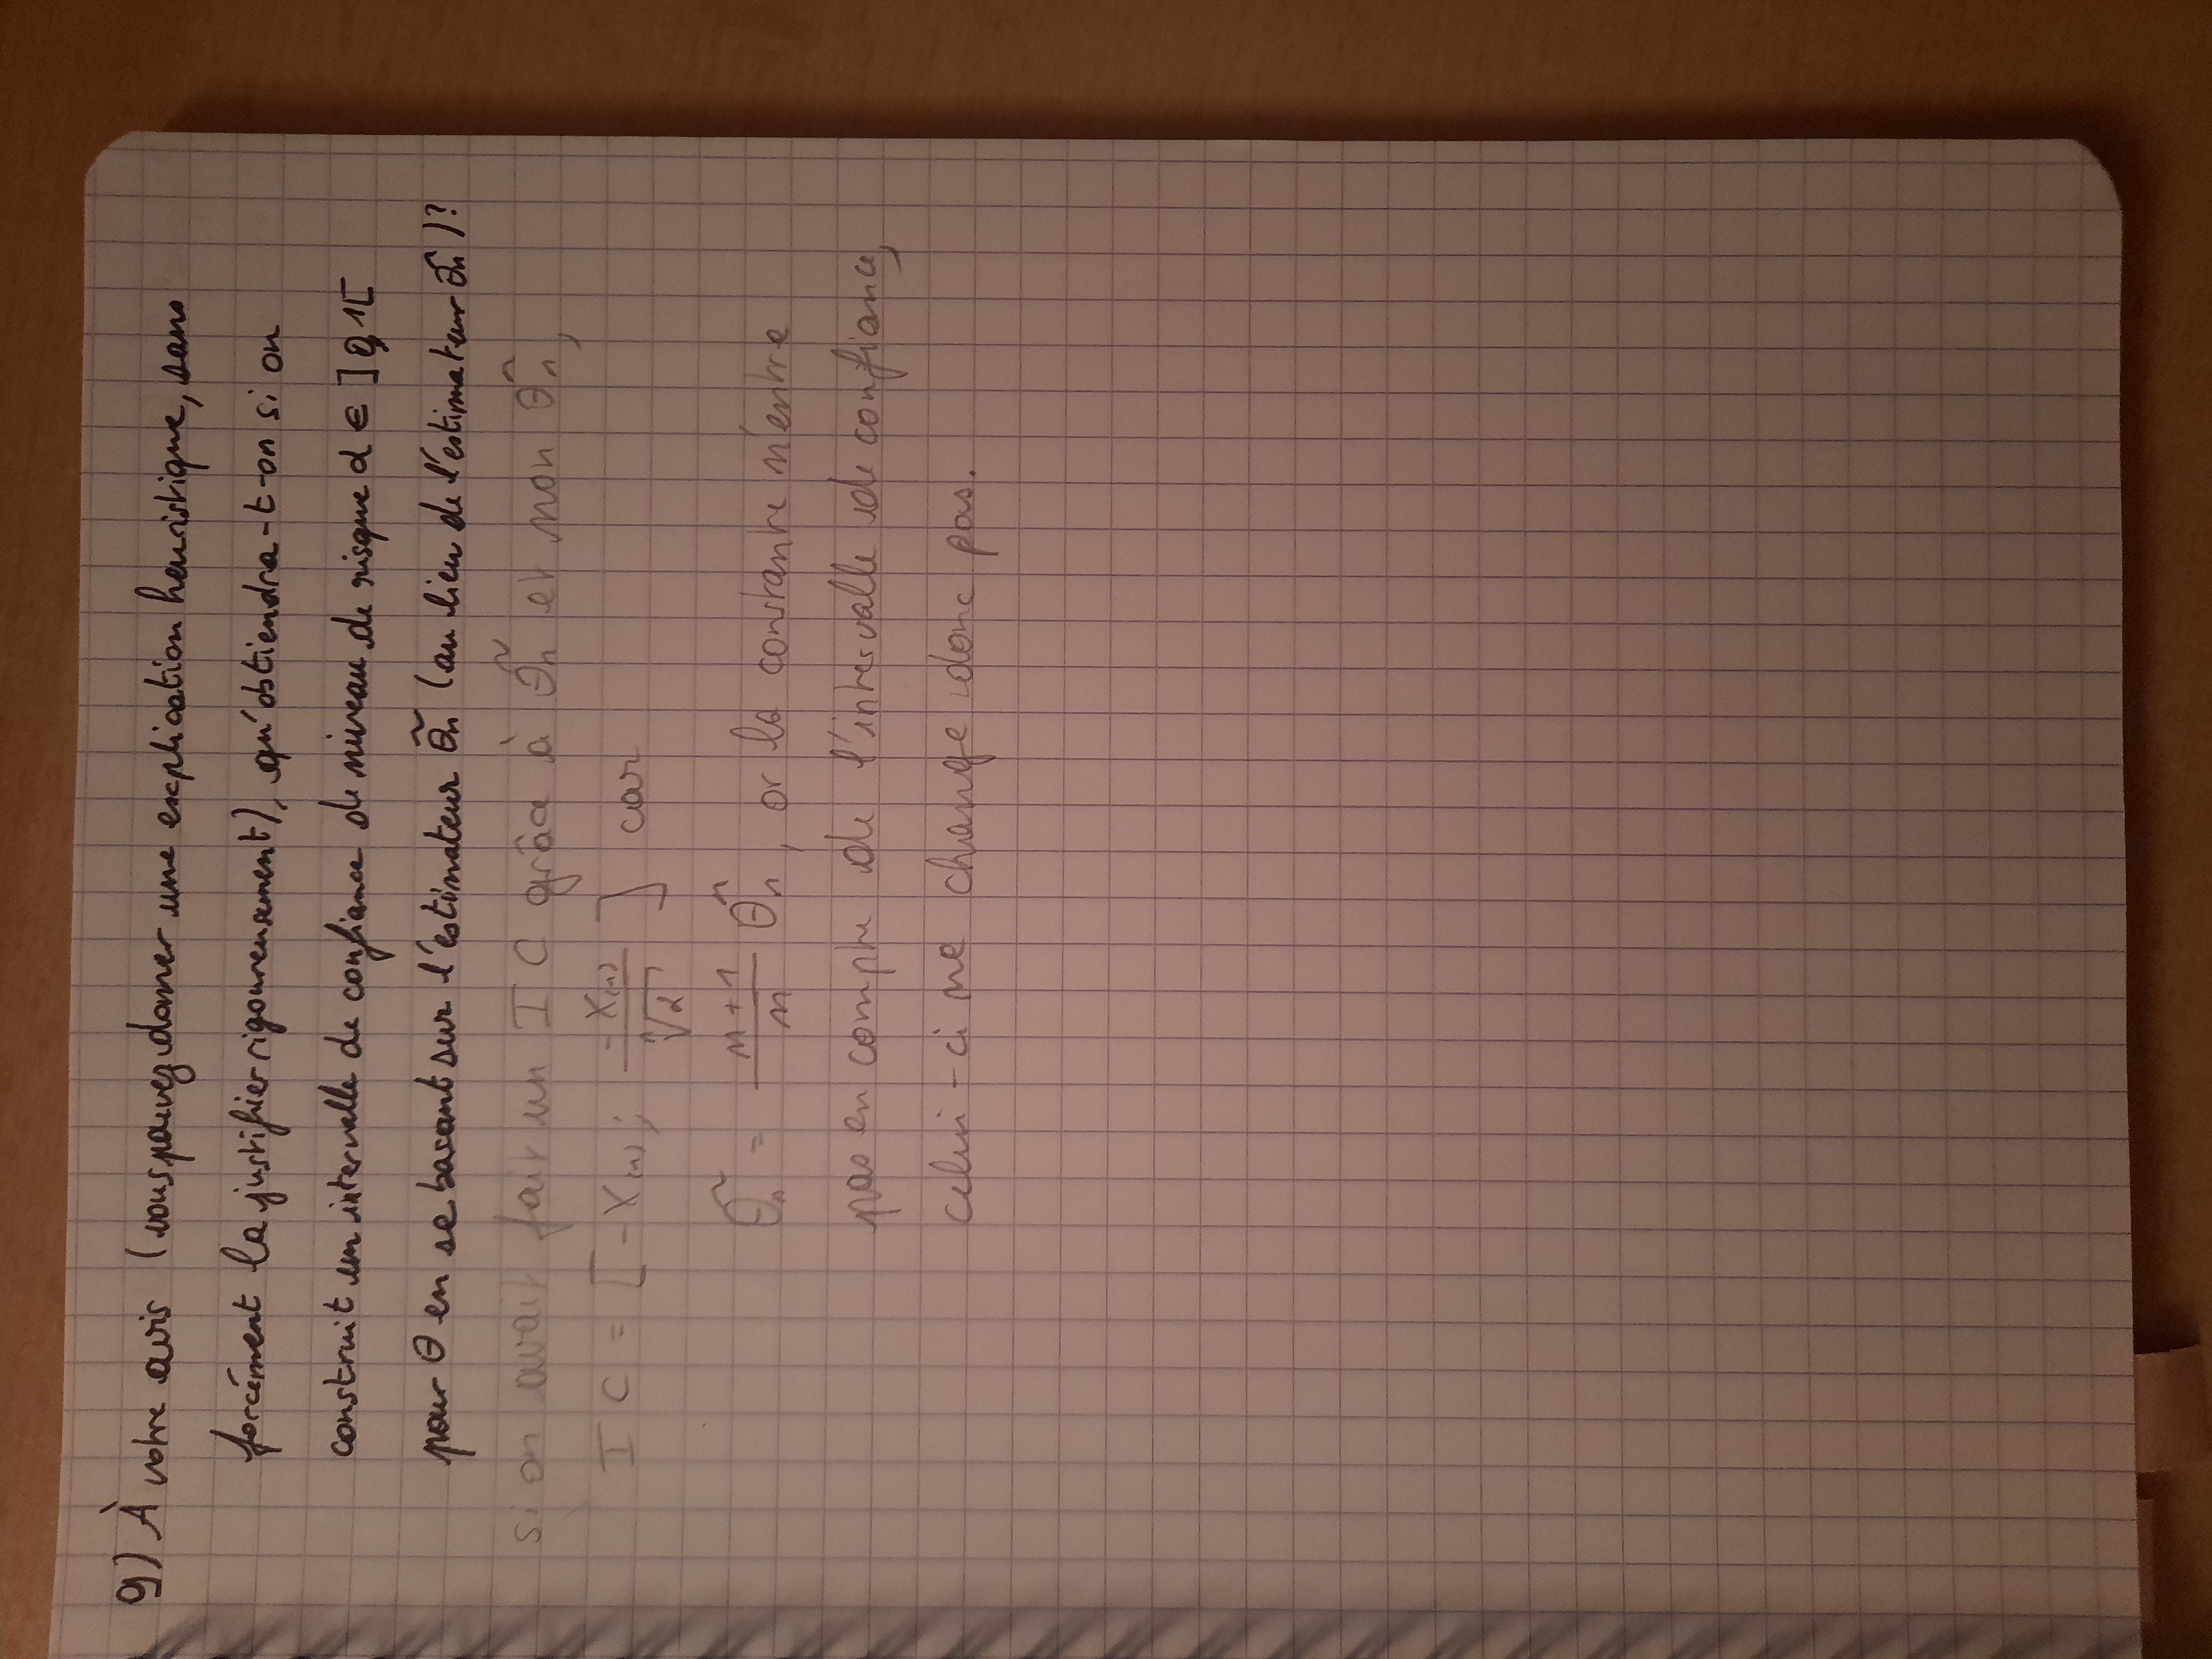 9) À votre avis (vous pouvez donner une explication heuristique, sans
forcément la justifier rigoureusement), qu'obtiendra-t-on si on
construit un intervalle de confiance de niveau de risque α ∈ ]0,1[
pour θ en se basant sur l'estimateur θ̃n (au lieu de l'estimateur θ̂n)?
si on avait fait un IC grâce à θ̃n et non θ̂n,
IC = [-X(1); -X(1)/ⁿ√α] car
θ̃n = (n+1)/n θ̂n, or la constante n'entre
pas en compte de l'intervalle de confiance,
celui-ci ne change donc pas.